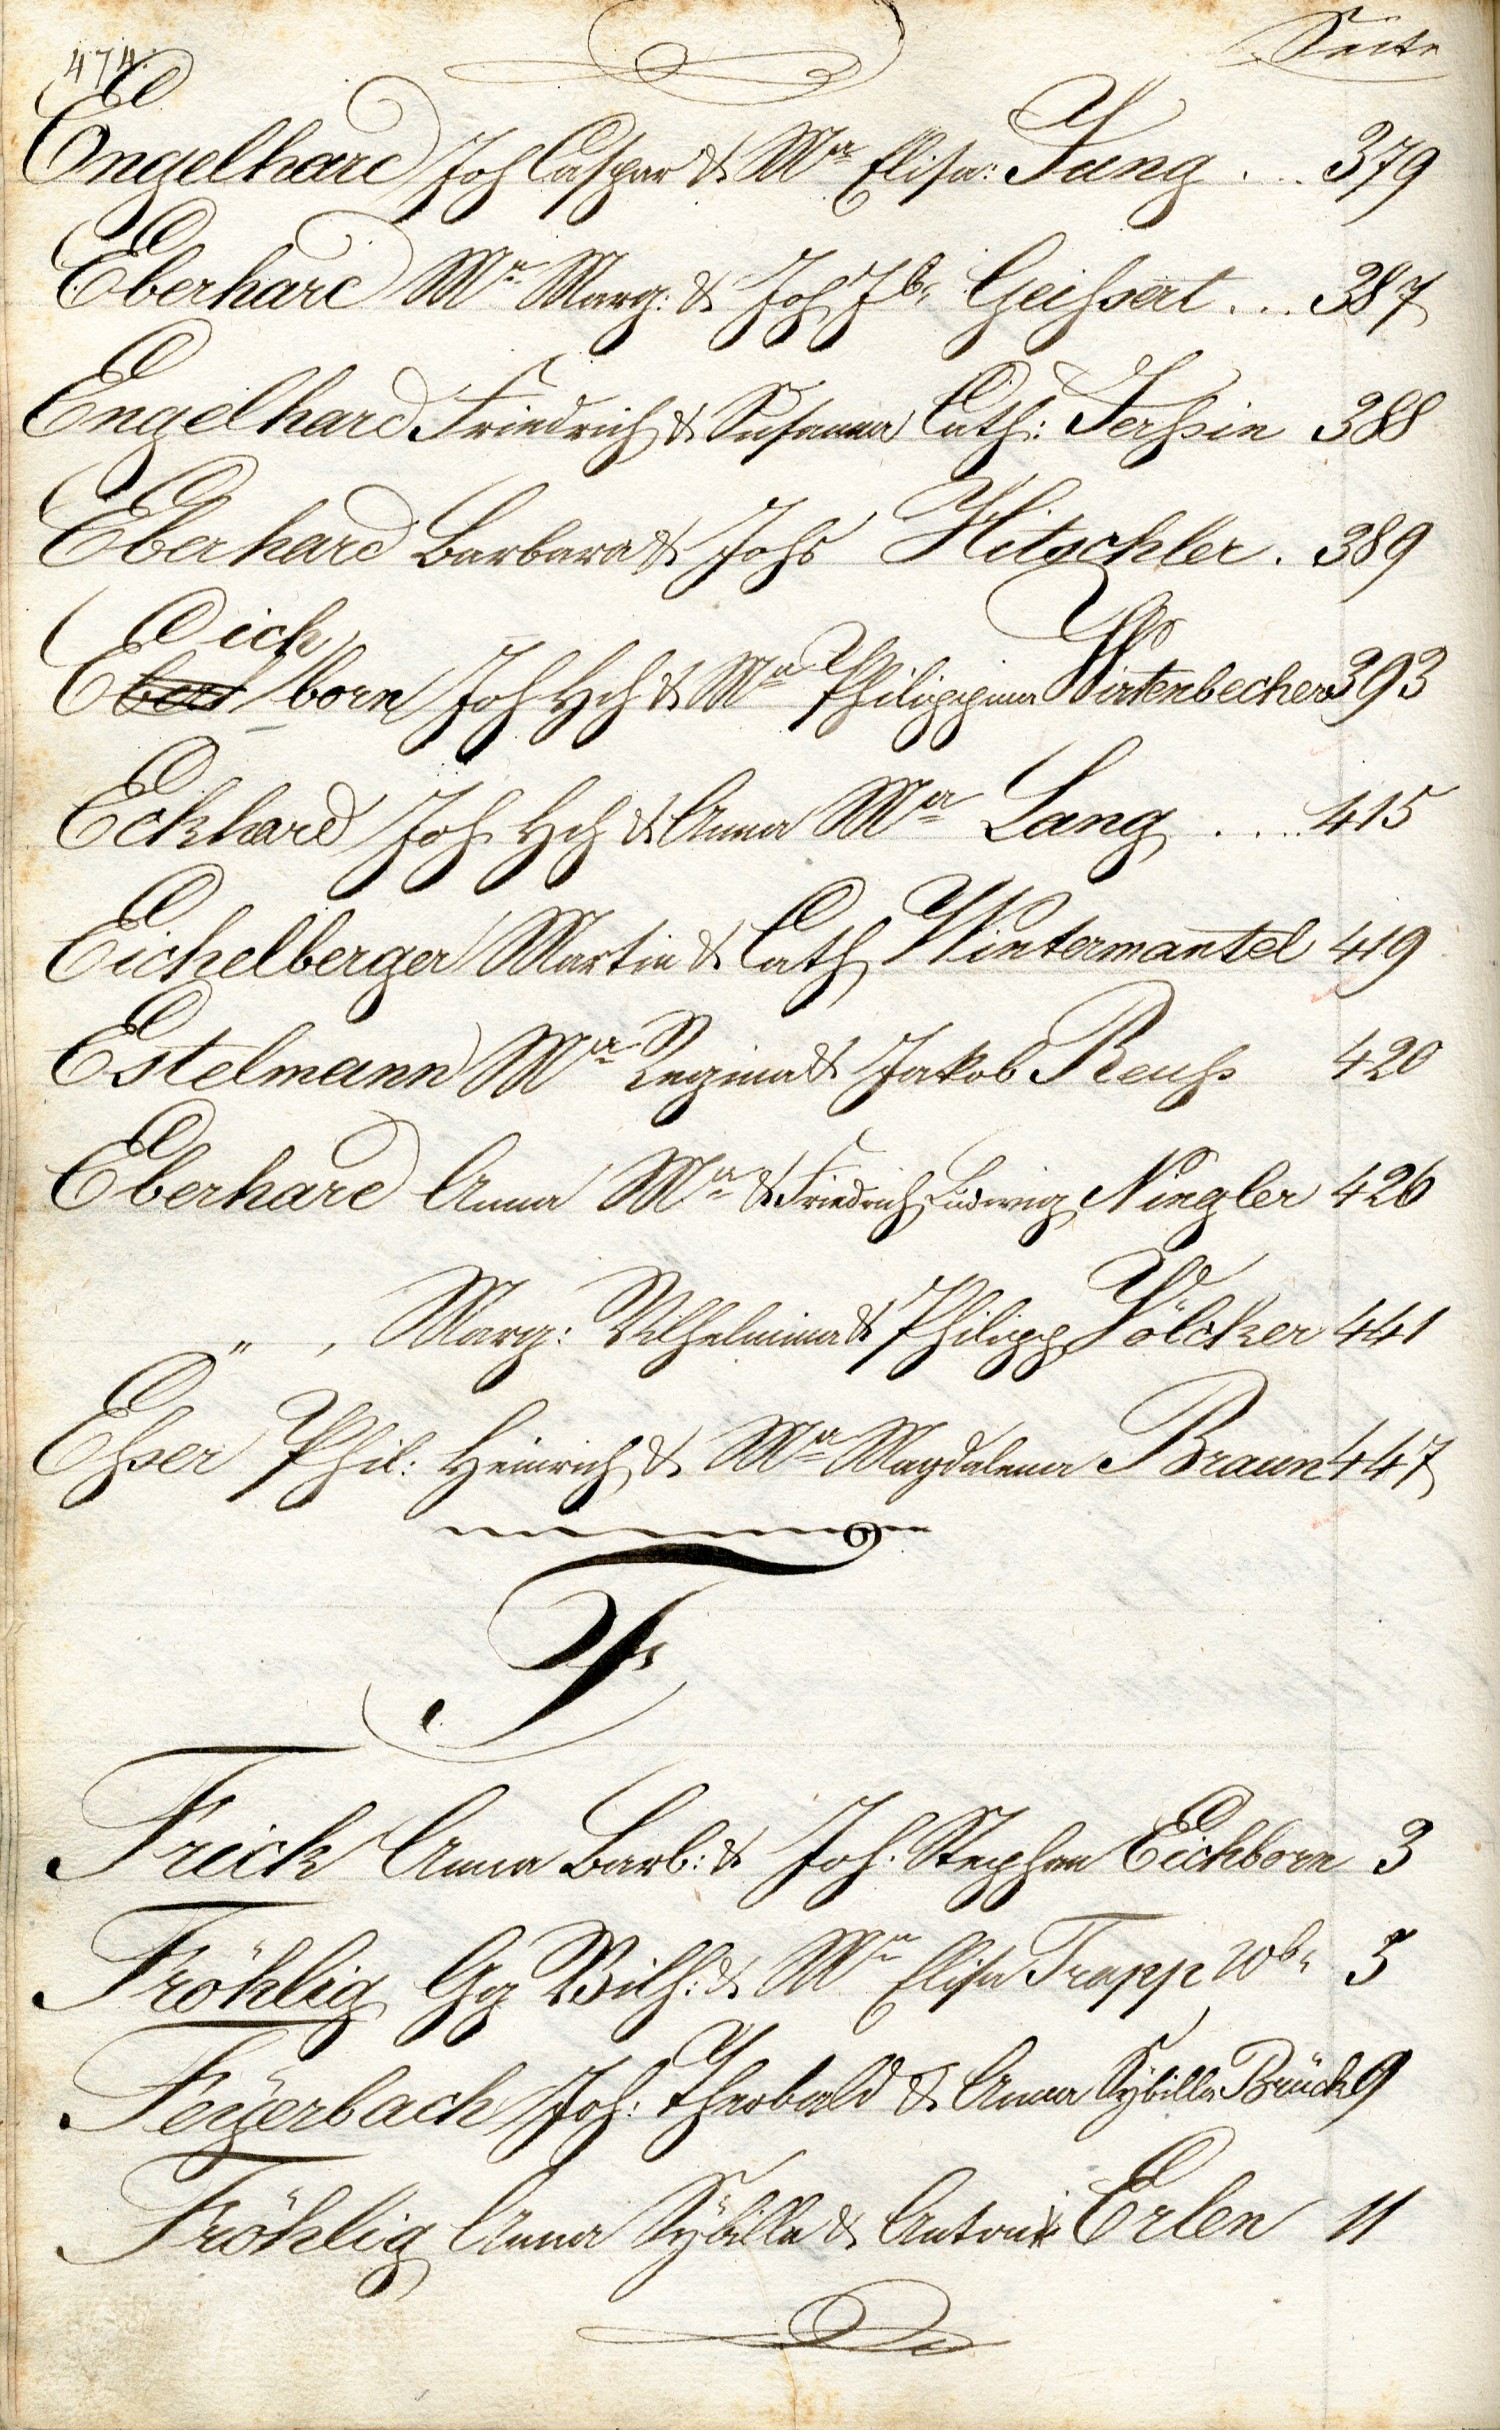 474.
Seite
Engelhard Joh Caspar & Ma Elisa: Jung ... 379
Eberhard Ma Marg: & Joh Jb. Geißert ... 387
Engelhard Friedrich & Susanna Cath: Jerßin 388
Eberhard Barbara & Johs Hitschler . 389
Eich
Ebers born Joh Hch & Ma Philippina Wirtenbecher 393
Eckhard Joh Hch & Anna Ma Lang ... 415
Eichelberger Martin & Cath Wintermantel 419
Estelmann Ma Regina & Jakob Reuß 420
Eberhard Anna Ma & Friedrich Ludwig Ningler 426
" , Marg: Wilhelmina & Philipp Völcker 441
Eßer Phil: Heinrich & Ma Magdalena Braun 447
F
Frick Anna Barb: & Joh. Stephan Eichborn 3
Fröhlig Gg Wilh: & Ma Elisa Trapp Wb. 5
Feÿerbach Joh: Theobald & Anna Sÿbilla Brück 9
Fröhlig Anna Sÿbilla & Anton Erlen 11